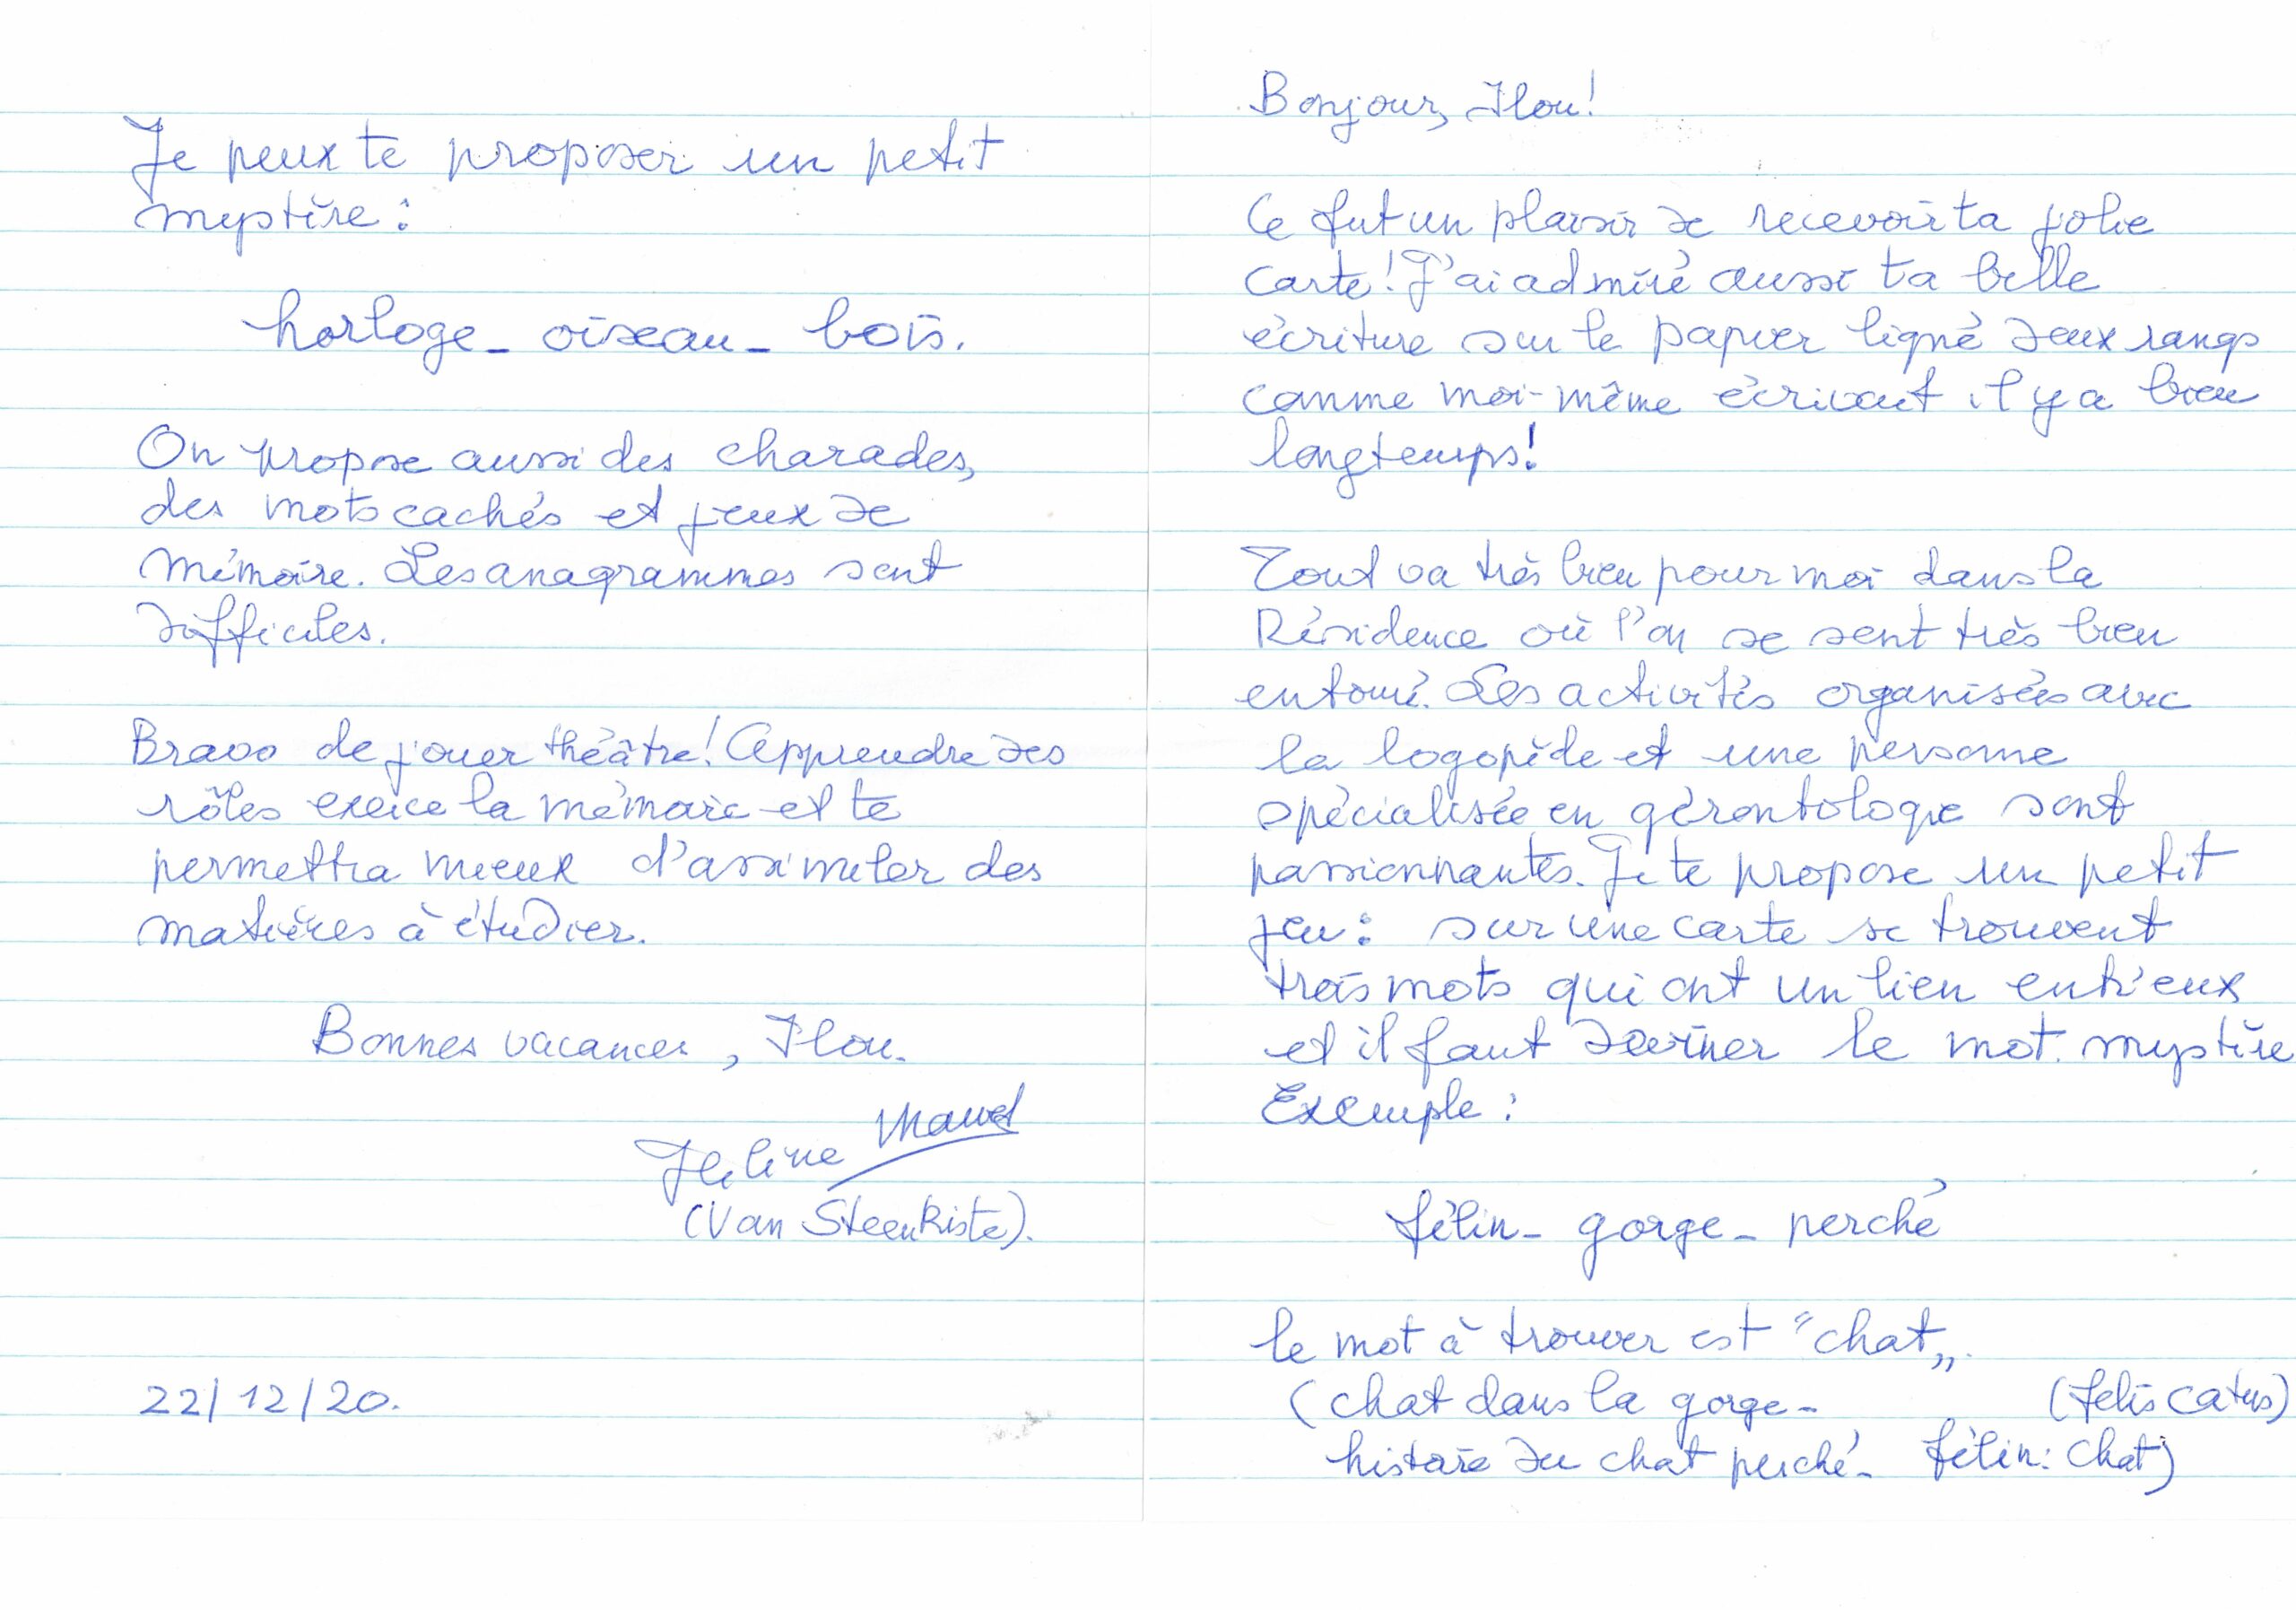 Bonjour, Ilou!
Ce fut un plaisir de recevoir ta jolie
carte! J'ai admiré aussi ta belle
écriture sur le papier ligné deux rangs
comme moi-même écrivait il y a bien
longtemps!
Tout va très bien pour moi dans la
Résidence où l'on se sent très bien
entouré. Les activités organisées avec
la logopède et une personne
spécialisée en gérontologie sont
passionnantes. Je te propose un petit
jeu: sur une carte se trouvent
trois mots qui ont un lien entr'eux
et il faut deviner le mot mystère
Exemple:
félin - gorge - perché
le mot à trouver est "chat".
(chat dans la gorge - (felis catus)
histoire du chat perché - félin: chat)
Je peux te proposer un petit
mystère:
horloge - oiseau - bois.
On propose aussi des charades,
des mots cachés et jeux de
mémoire. Les anagrammes sont
difficiles.
Bravo de jouer théâtre! Apprendre des
rôles exerce la mémoire et te
permettra mieux d'assimiler des
matières à étudier.
Bonnes vacances, Ilou.
Hélène
(Van Steenkiste).
22/12/20.